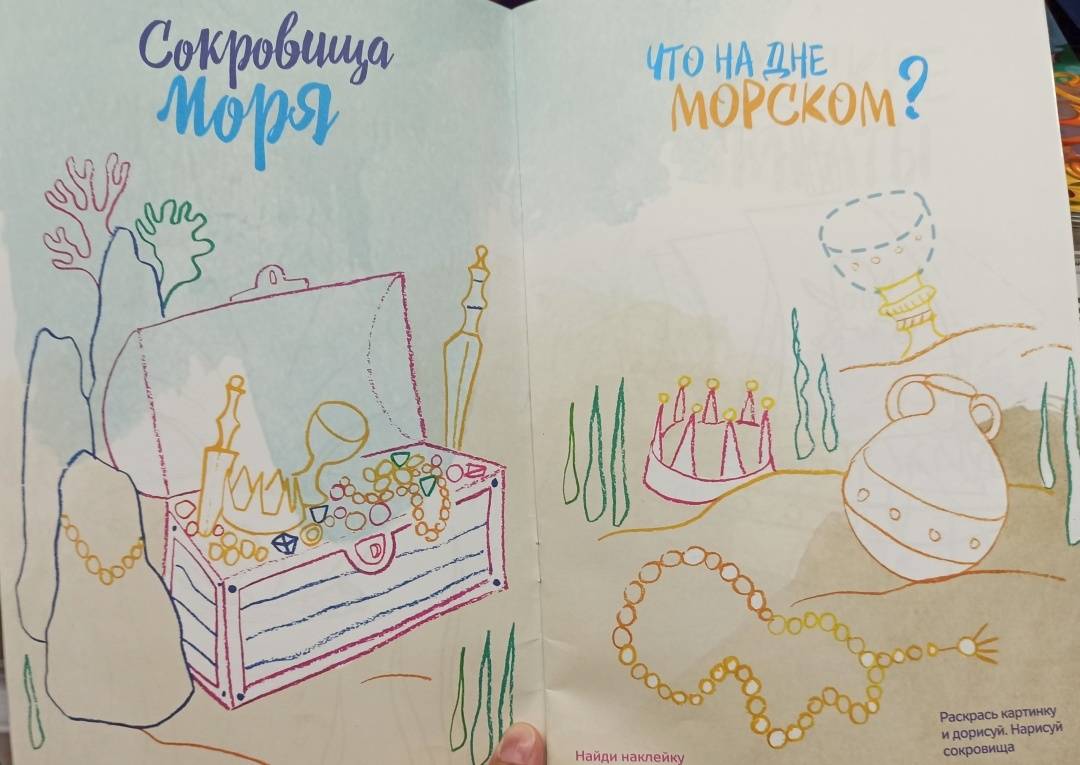 Сокровища
Моря
ЧТО НА ДНЕ
МОРСКОМ?
Найди наклейку
Раскрась картинку
и дорисуй. Нарисуй
сокровища